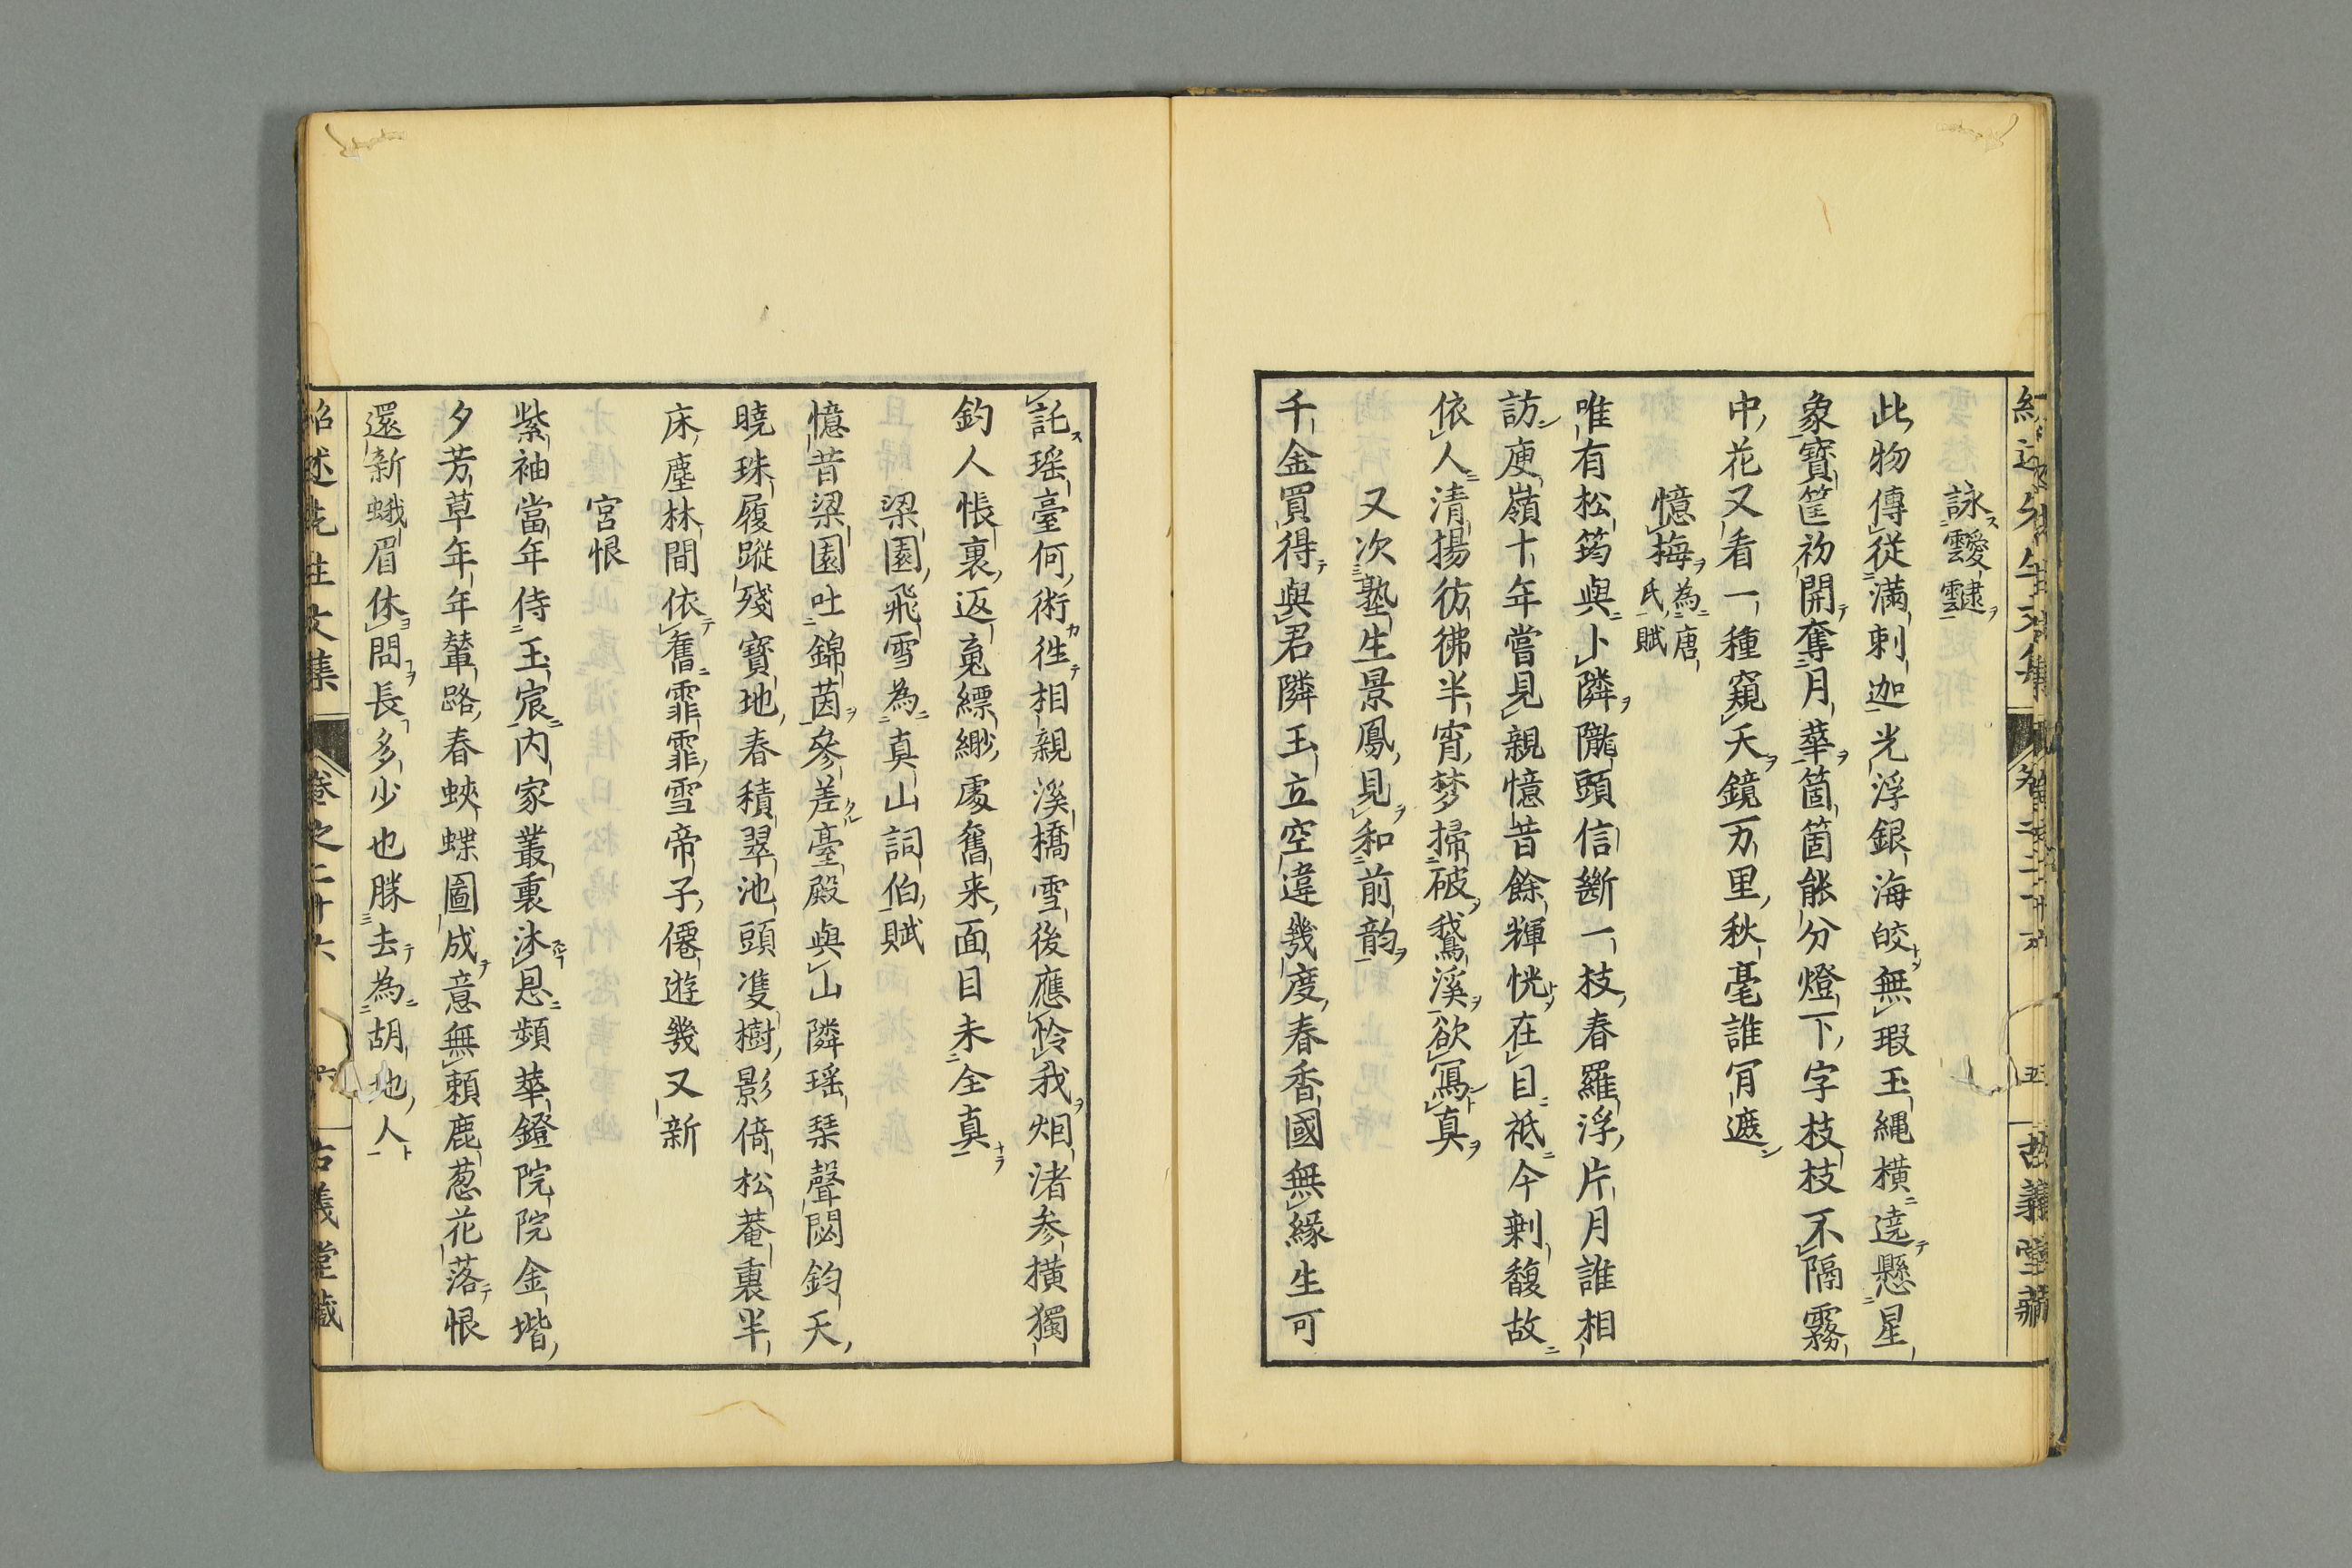 詠靉靆
此物傳從滿剌迦光浮銀海皎無瑕玉繩橫遶懸星
象寶筐初開奪月華箇箇能分燈下字枝枝不隔霧
中花又看一種窺天鏡万里秋毫誰肎遮
憶梅為唐氏賦
唯有松筠與卜隣隴頭信斷一枝春羅浮片月誰相
訪庾嶺十年嘗見親憶昔餘輝恍在目祇今剰馥故
依人清揚彷彿半宵梦掃破鵞溪欲寫真
又次塾生景鳳見和前韵
千金買得與君隣玉立空違幾度春香國無緣生可
託瑶臺何術徃相親溪橋雪後應怜我烟渚参橫獨
釣人悵裏返䰟縹緲處舊来面目未全真
梁園飛雪為真山詞伯賦
憶昔梁園吐錦茵參差臺殿與山隣瑶琹聲閟鈞天
曉珠履蹤殘寶地春積翠池頭凄樹影倚松菴裏半
床塵林間依舊霏霏雪帝子僊遊幾又新
宮恨
紫袖當年侍玉宸内家叢裏沐恩頻華鐙院院金堦
夕芳草年年輦路春蛺蝶圖成意無賴鹿葱花落恨
還新蛾眉休問長多少也勝去為胡地人
紹述先生文集
卷之二十六
六
古義堂藏